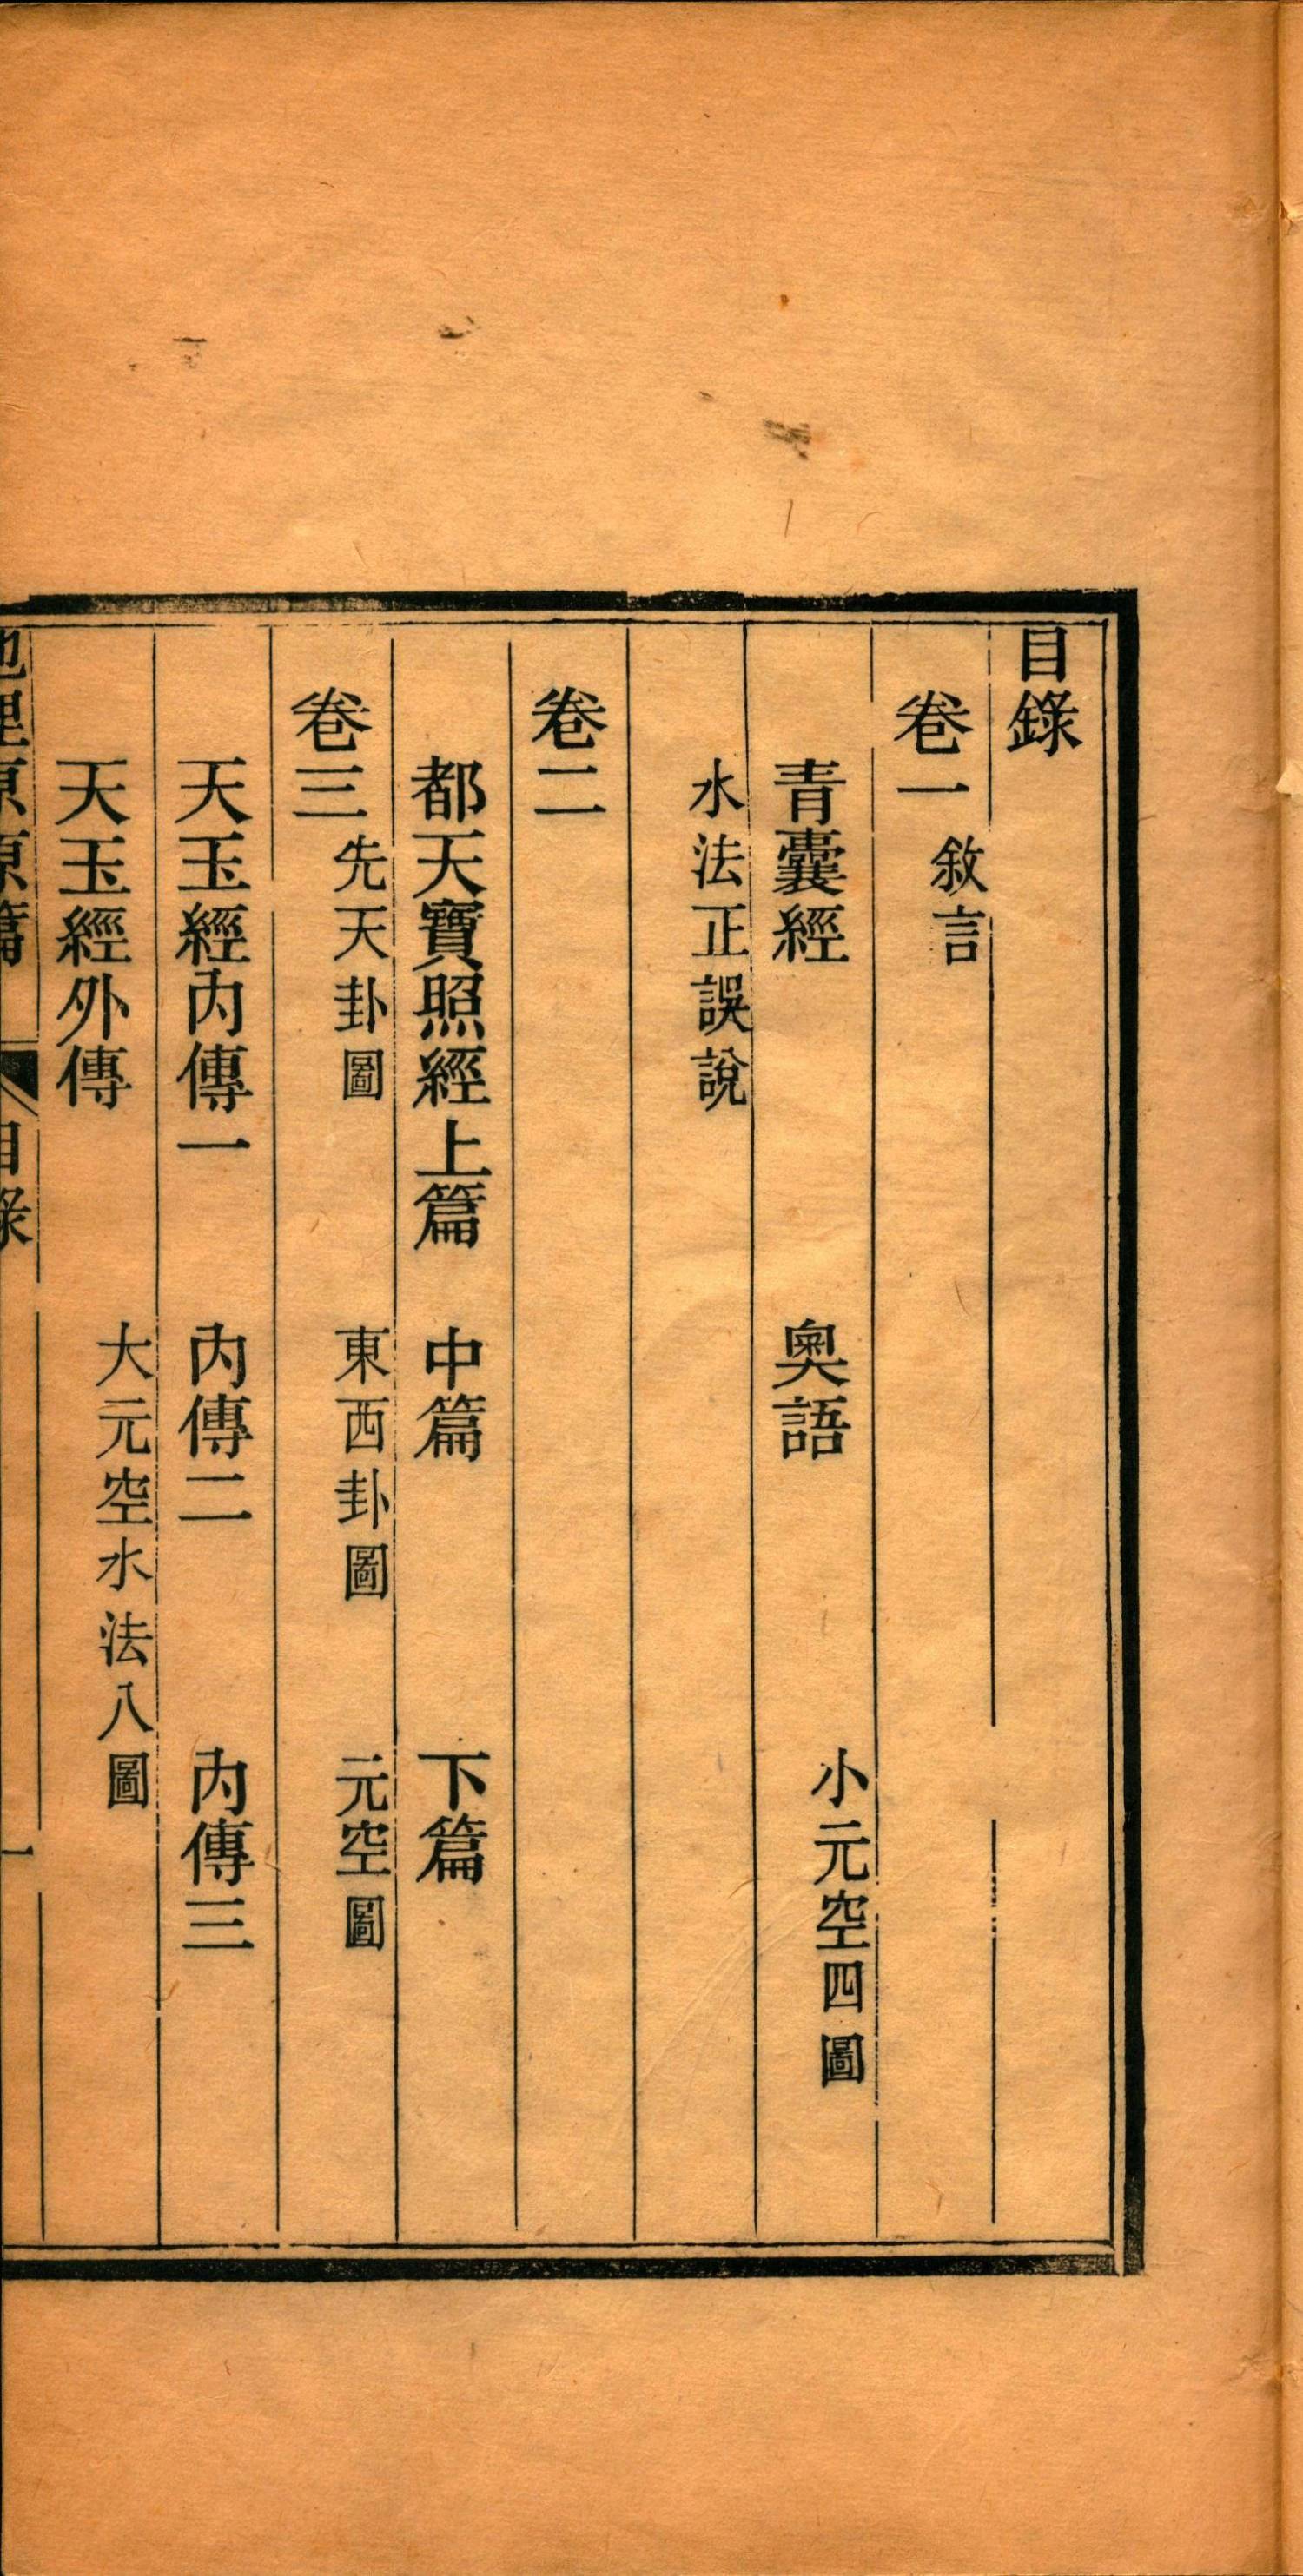 目錄
卷一 敘言
青囊經 奧語 小元空四圖
水法正誤說
卷二
都天寶照經上篇 中篇 下篇
卷三 先天卦圖 東西卦圖 元空圖
天玉經內傳一 內傳二 內傳三
天玉經外傳 大元空水法八圖
地理原原篇 目錄 一